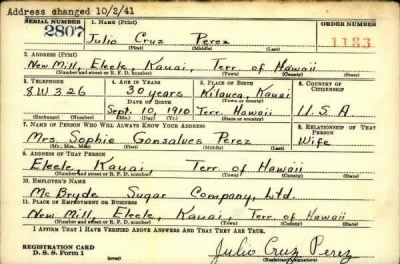 Address changed 10/2/41
SERIAL NUMBER 1. NAME (Print) ORDER NUMBER
2807 Julio Cruz Perez 1183
(First) (Middle) (Last)
2. ADDRESS (Print)
New Mill, Eleele, Kauai, Terr. of Hawaii
(Number and street or R. F. D. number) (Town) (County) (State)
3. TELEPHONE 4. AGE IN YEARS 5. PLACE OF BIRTH 6. COUNTRY OF CITIZENSHIP
8W326 30 years Kilauea, Kauai
DATE OF BIRTH (Town) (County)
Sept. 10, 1910 Terr. Hawaii U.S.A
(Exchange) (Number) (Mo.) (Day) (Yr.) (State or country)
7. NAME OF PERSON WHO WILL ALWAYS KNOW YOUR ADDRESS 8. RELATIONSHIP OF THAT PERSON
Mrs. Sophie Gonsalves Perez Wife
(Mr., Mrs., Miss) (First) (Middle) (Last)
9. ADDRESS OF THAT PERSON
Eleele, Kauai, Terr. of Hawaii
(Number and street or R. F. D. number) (Town) (County) (State)
10. EMPLOYER'S NAME
Mc Bryde Sugar Company, Ltd.
11. PLACE OF EMPLOYMENT OR BUSINESS
New Mill, Eleele, Kauai, Terr. of Hawaii
(Number and street or R. F. D. number) (Town) (County) (State)
I AFFIRM THAT I HAVE VERIFIED ABOVE ANSWERS AND THAT THEY ARE TRUE.
REGISTRATION CARD
D. S. S. Form 1 Julio Cruz Perez
(Registrant's signature)